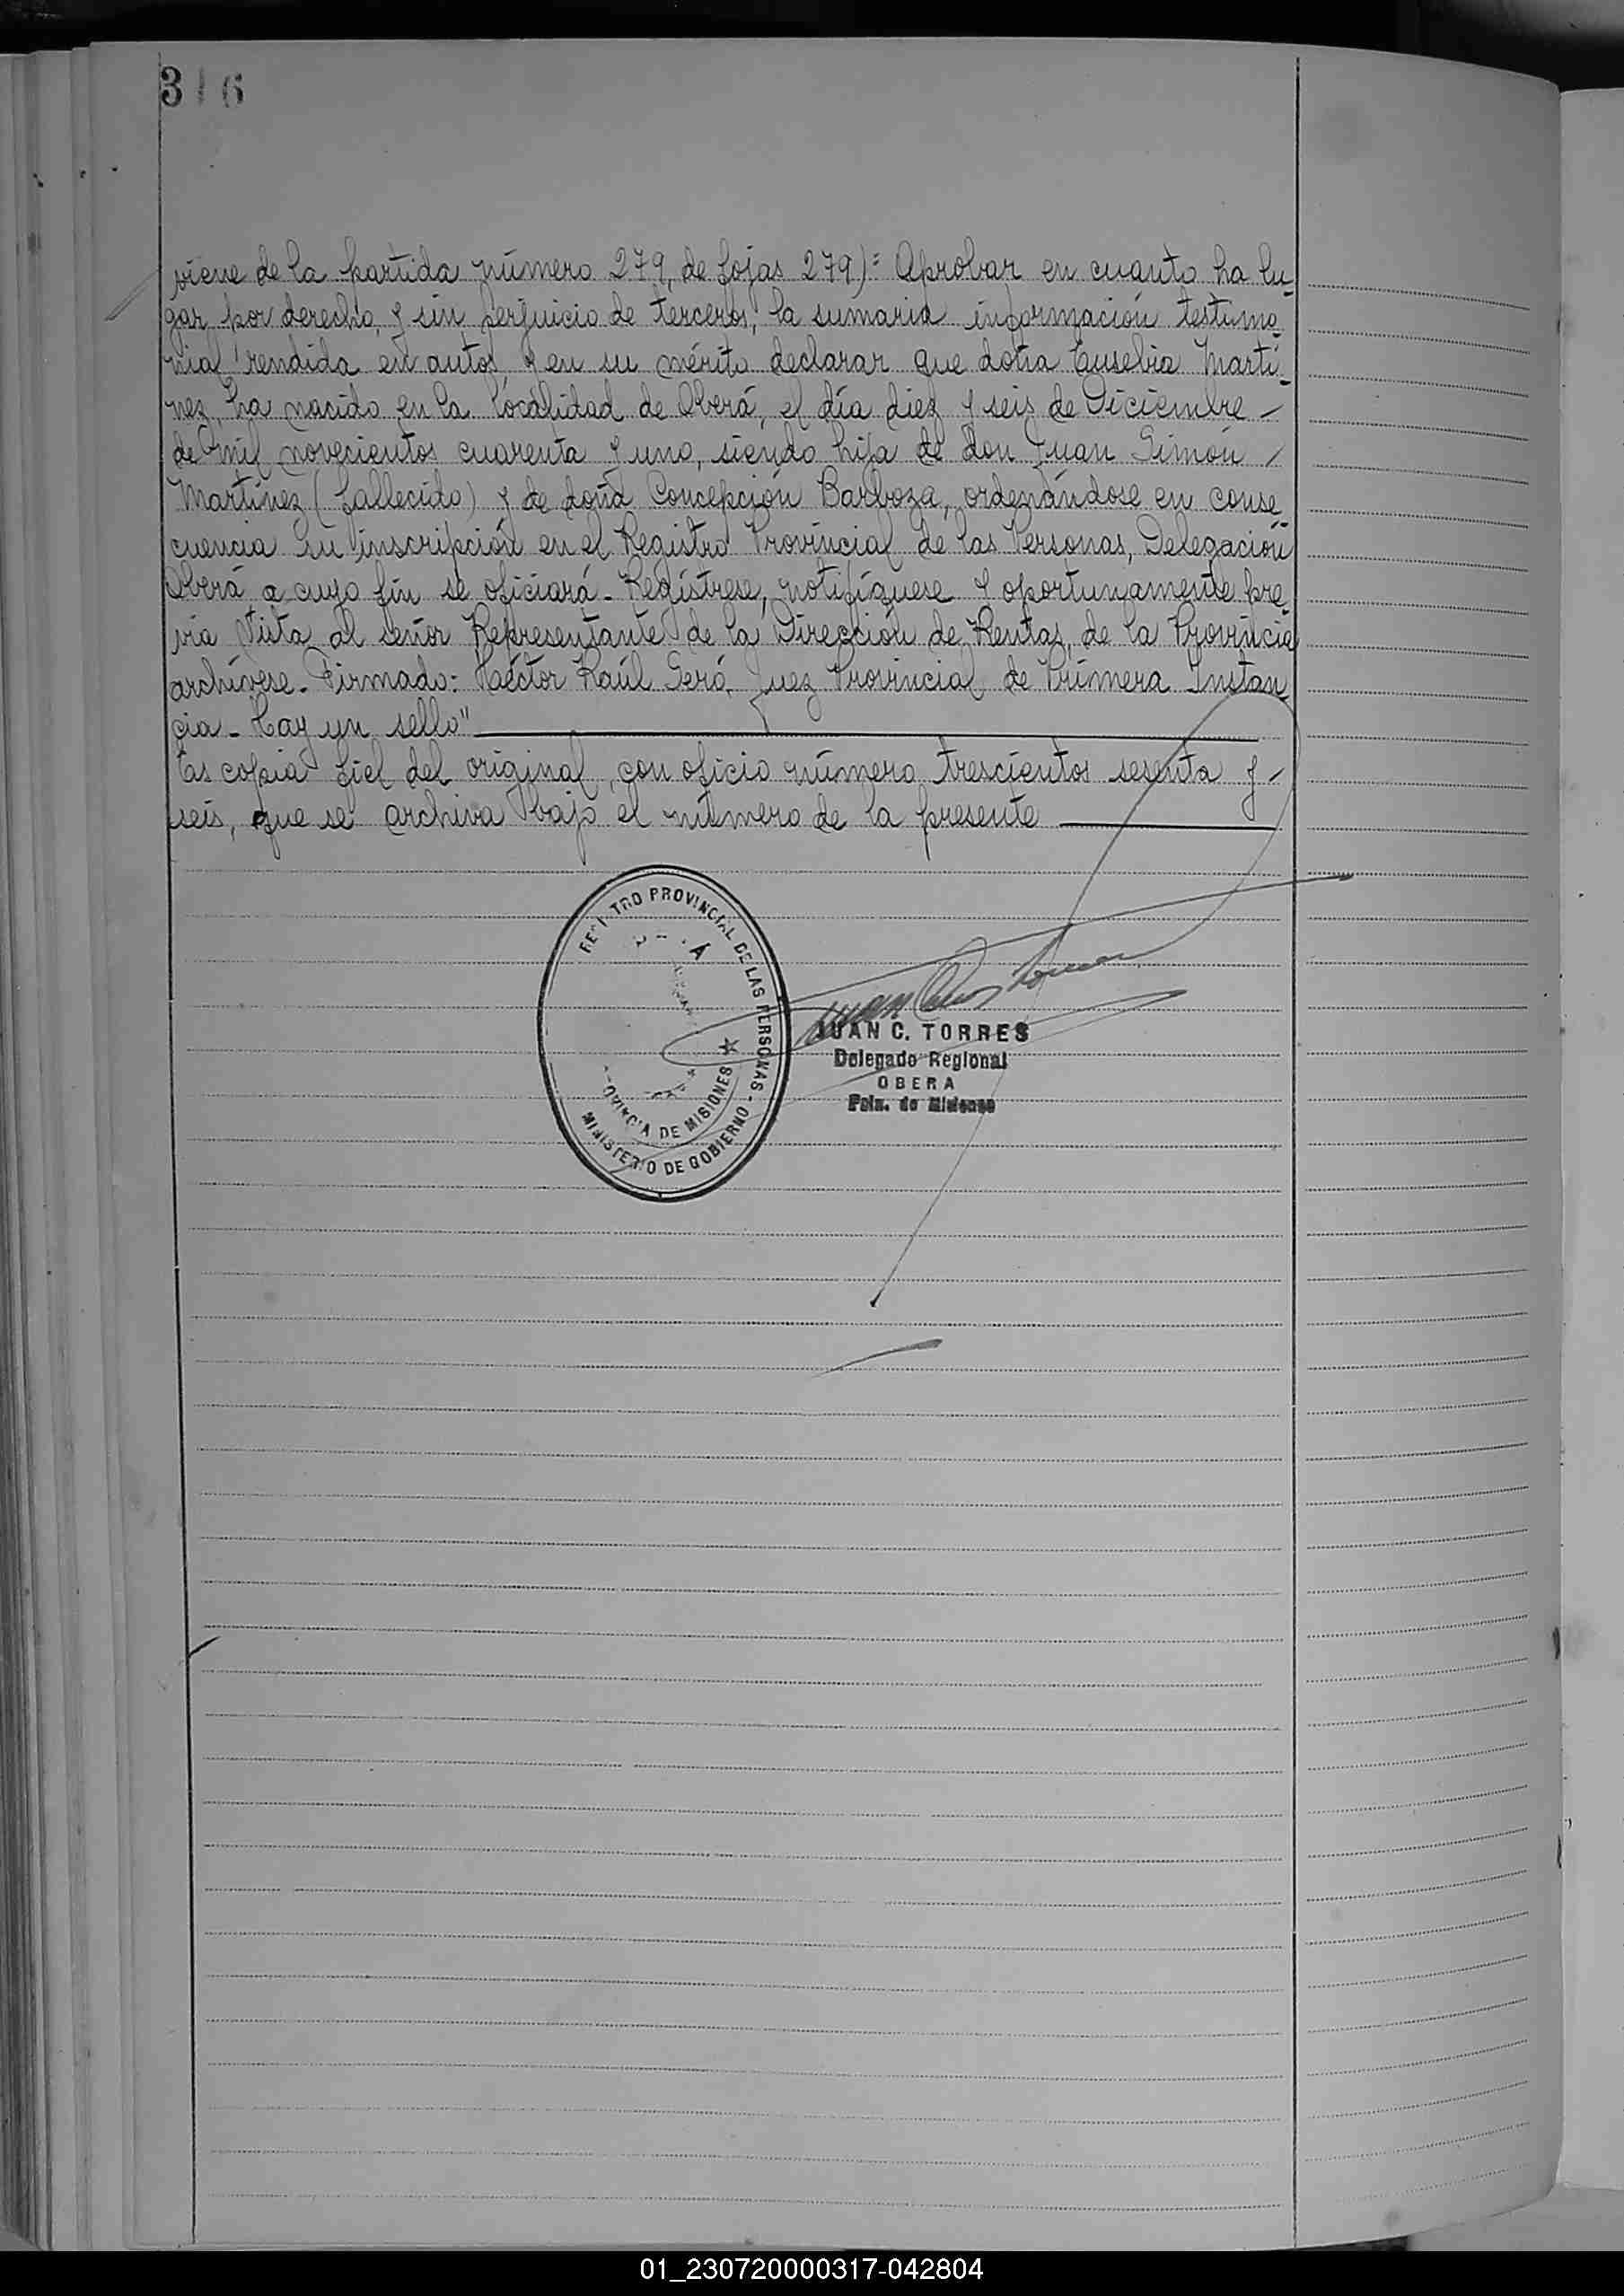 316
viene de la partida número 279, de fojas 279): Aprobar en cuanto ha lu-
gar por derecho, y sin perjuicio de terceros, la sumaria información testimo-
nial rendida en autos y en su mérito declarar que doña Eusebia Martí-
nez, ha nacido en la localidad de Oberá, el día diez y seis de Diciembre -
de mil novecientos cuarenta y uno, siendo hija de don Juan Simón /
Martínez (fallecido) y de doña Concepción Barboza, ordenándose en conse-
cuencia su inscripción en el Registro Provincial de las Personas, Delegación
Oberá a cuyo fin se oficiará - Regístrese, notifíquese y oportunamente pre-
via vista al señor Representante de la Dirección de Rentas, de la Provincia
archívese. Firmado: Héctor Raúl Juez Provincial de Primera Instan
cia - Hay un sello"
Es copia fiel del original, con oficio número trescientos sesenta y -
seis, que se archiva bajo el número de la presente
REGISTRO PROVINCIAL DE LAS PERSONAS - MINISTERIO DE GOBIERNO
PROVINCIA DE MISIONES
JUAN C. TORRES
Delegado Regional
OBERA
Pcia. de Misiones
01_230720000317-042804